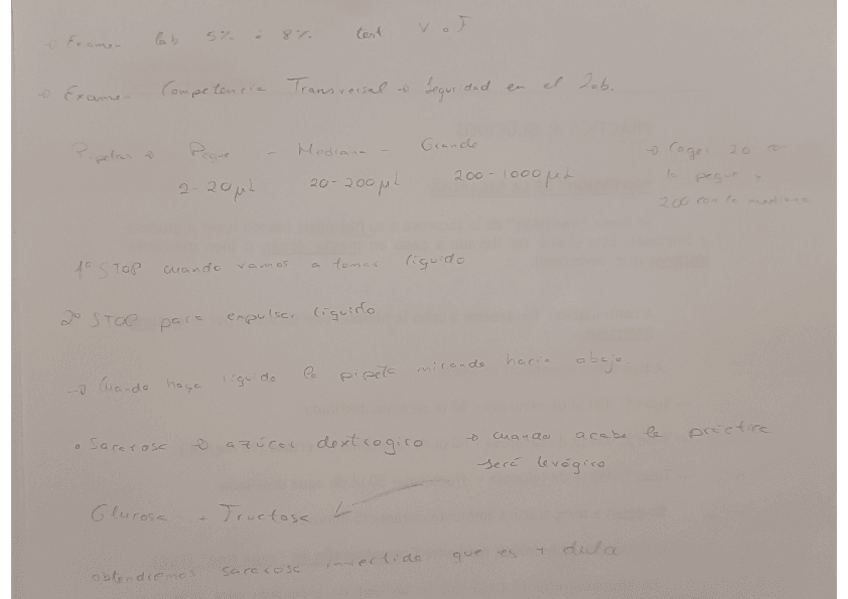 → Examen lab 5% ó 8% test V o F
→ Examen Competencia Transversal → Seguridad en el Lab.
Pipetas → Peque - Mediana - Grande
2-20 µL 20-200 µL 200-1000 µL
→ Coger 20 con
la peque y
200 con la mediana
1º STOP cuando vamos a tomar líquido
2º STOP para expulsar líquido
→ Cuando haya líquido la pipeta mirando hacia abajo.
• Sacarosa → azúcar dextrogiro → cuando acabe la práctica
será levógiro
Glucosa + Fructosa
obtendremos sacarosa invertida que es + dulce